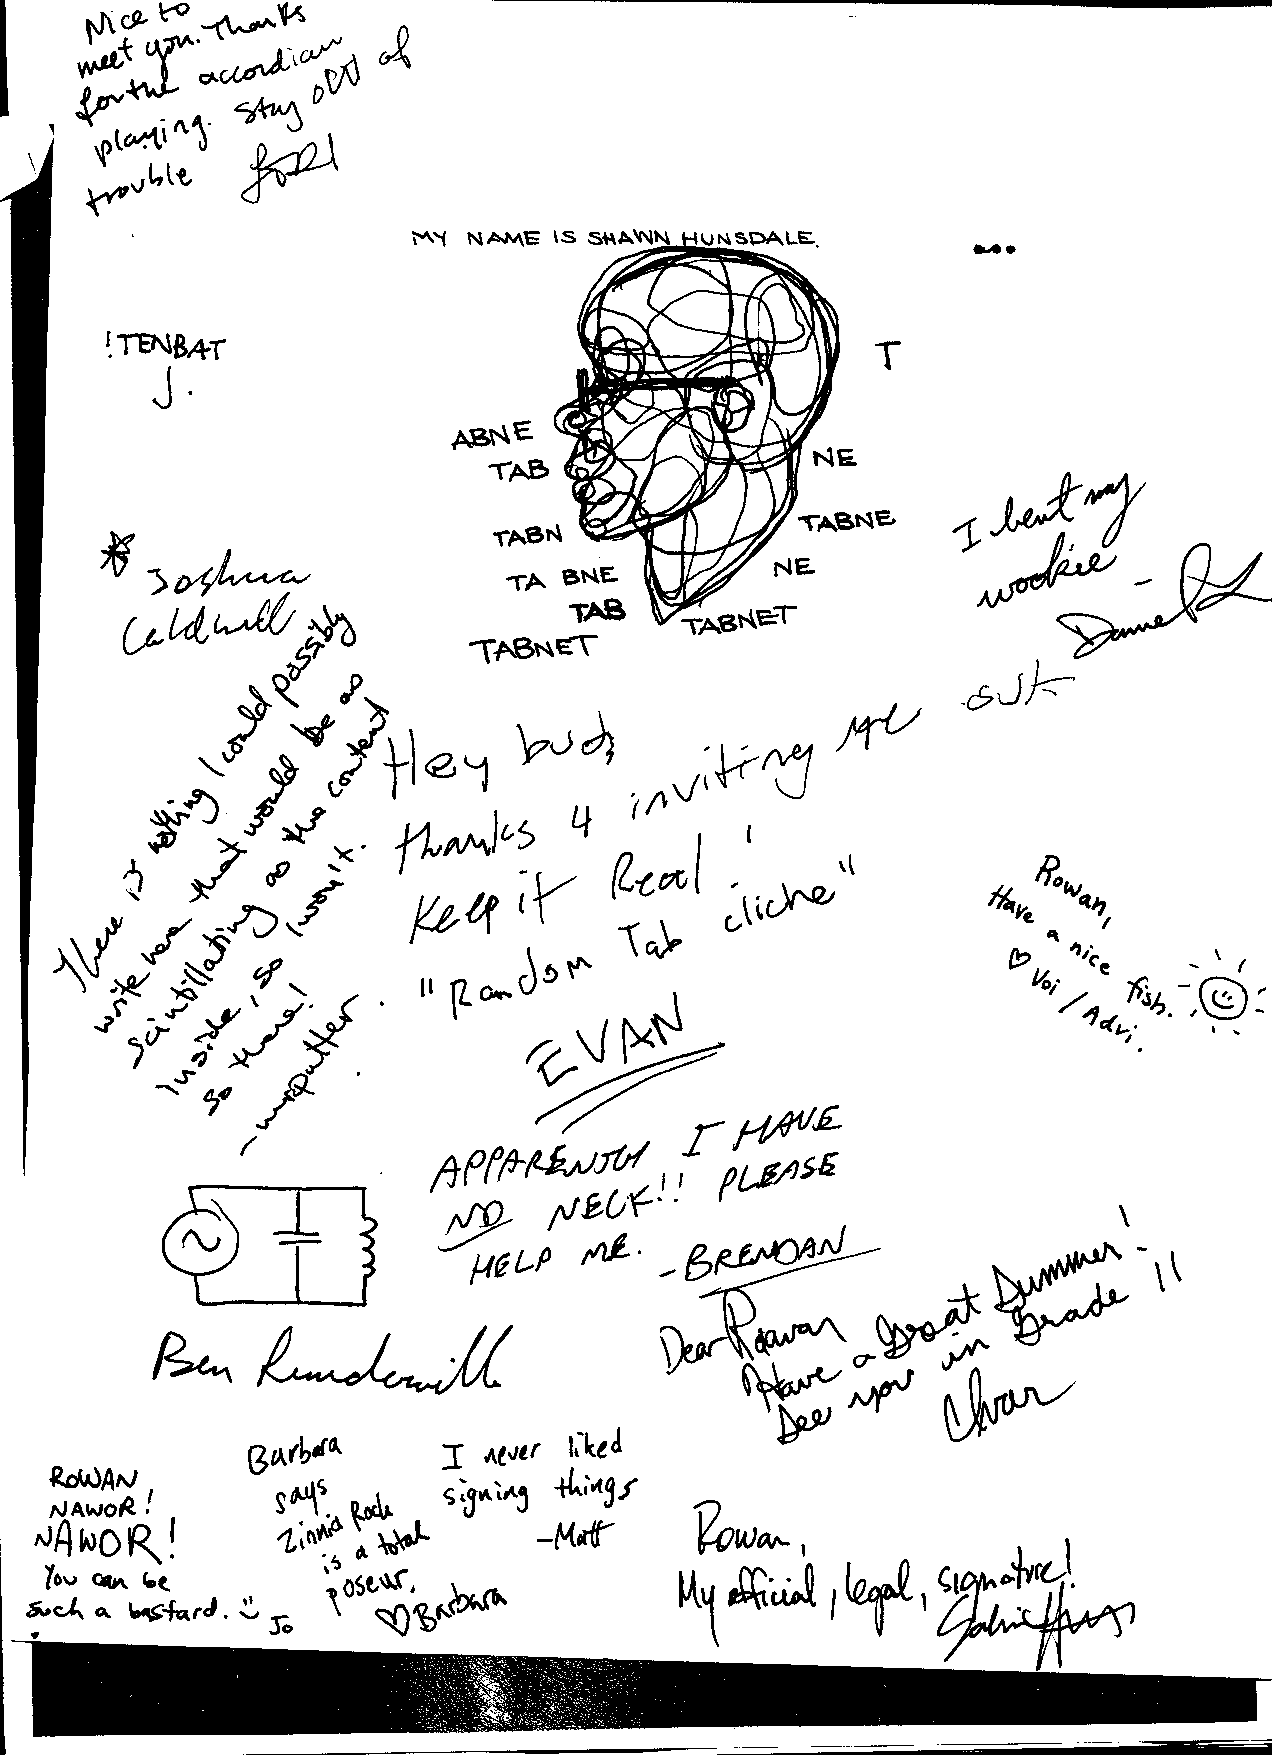 Nice to
meet you. Thanks
for the accordian
playing. Stay out of
trouble
MY NAME IS SHAWN HUNSDALE.
!TENBAT
J.
T
ABNE
TAB
NE
TABN
TABNE
TA BNE
NE
TAB
TABNET
TABNET
I bent my
wookie
- Danie
Joshua
Caldwell
There is nothing I could possibly
write here that would be as
scintillating as the content
inside, so I won't.
so there!
Hey bud,
thanks 4 inviting me out
Keep it Real!
"Random Tab cliche"
EVAN
Rowan,
Have a nice fish.
♡ Voi / Advi.
APPARENTLY I HAVE
NO NECK!! PLEASE
HELP ME.
-BRENDAN
Ben
Dear Rowan
Have a Great Summer!
See you in Grade 11
ROWAN
NAWOR!
NAWOR!
You can be
such a bastard. Jo
Barbara
says
Zinnia Rock
is a total
poseur.
♡ Barbara
I never liked
signing things
-Matt
Rowan,
My official, legal, signature!